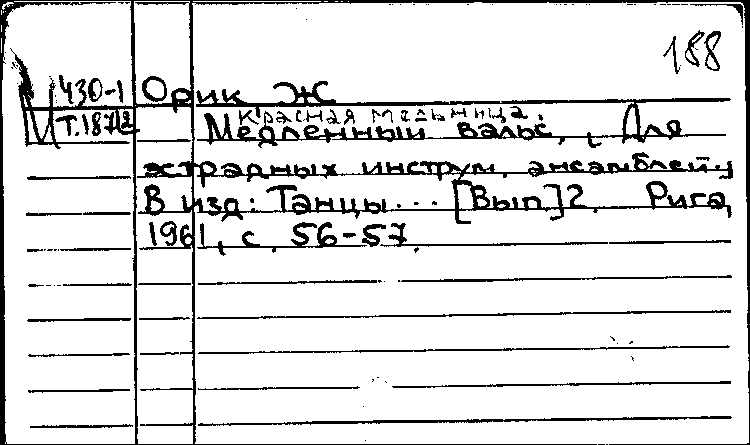 188
М 430-1
Т.187/2
Орик Ж
Красная мельница.
Медленный вальс. [Для
эстрадных инструм. ансамблей.]
В изд: Танцы... [Вып]2. Рига,
1961, с. 56-57.